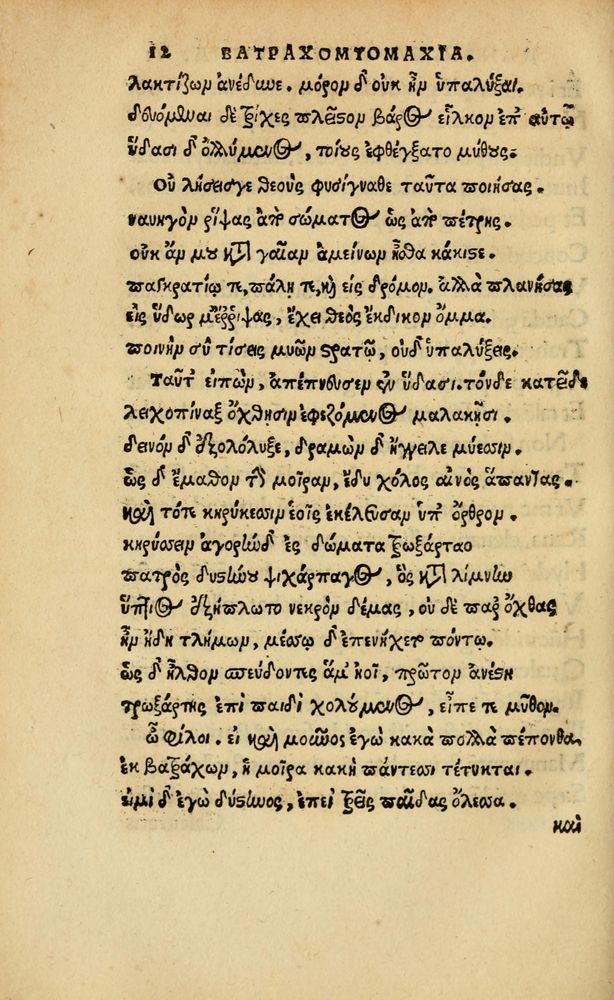 12 ΒΑΤΡΑΧΟΜΥΟΜΑΧΊΑ.
λακτίζωμ ἀνέδυνε. μόρομ δ' οὐκ ἦμ ὑπαλύξαι.
δευόμεναι δὲ τρίχες πλεῖσομ βάρος εἷλκομ ἐπ' αὐτῷ
ὕδασι δ' ὀλλύμενος, τοίους ἐφθέγξατο μύθους.
Οὐ λήσεισγε θεοὺς φυσίγναθε ταῦτα ποιήσας.
ναυηγὸμ ῥίψας ἀπὸ σώματος ὡς ἀπὸ πέτρης.
οὐκ ἄμ μου κατὰ γαῖαμ ἀμείνωμ ἦσθα κάκιστε.
παγκρατίῳ τε, πάλη τε, καὶ εἰς δρόμομ. ἀλλὰ πλανήσας
εἰς ὕδωρ μ' ἔρριψας, ἔχει θεὸς ἔκδικομ ὄμμα.
ποινὴμ σὺ τίσεις μυῶμ στρατῷ, οὐδ' ὑπαλύξεις.
Ταῦτ' εἰπὼμ, ἀπέπνευσεμ ἐν ὕδασι. τόνδε κατεῖδε
λειχοπίναξ ὄχθησιμ ἐφεζόμενος μαλακῇσι.
δεινὸμ δ' ἐξολόλυξε, δραμὼμ δ' ἤγγειλε μύεσσιμ.
ὡς δ' ἔμαθομ τὴν μοῖραμ, ἔδυ χόλος αἰνὸς ἅπαντας.
καὶ τότε κηρύκεσσιμ ἑοῖς ἐκέλευσαμ ὑπ' ὄρθρομ.
κηρύσσειμ ἀγορὴνδ' ἐς δώματα τρωξάρταο
πατρὸς δυστήνου ψιχάρπαγος, ὃς κατὰ λίμνην
ὕπτιος ἐξήπλωτο νεκρὸμ δέμας, οὐ δὲ παρ' ὄχθας
ἦμ ἤδη τλήμωμ, μέσσῳ δ' ἐπενήχετο πόντῳ.
ὡς δ' ἦλθομ σπεύδοντες ἅμ' ἠοῖ, πρῶτομ ἀνέστη
τρωξάρτης ἐπὶ παιδὶ χολούμενος, εἶπέ τε μῦθομ.
ὦ Φίλοι. εἰ καὶ μοῦνος ἐγὼ κακὰ πολλὰ πέπονθα
ἐκ βατράχωμ, ἡ μοῖρα κακὴ πάντεσσι τέτυκται.
εἰμὶ δ' ἐγὼ δύστηνος, ἐπεὶ τρεῖς παῖδας ὄλεσσα.
καὶ